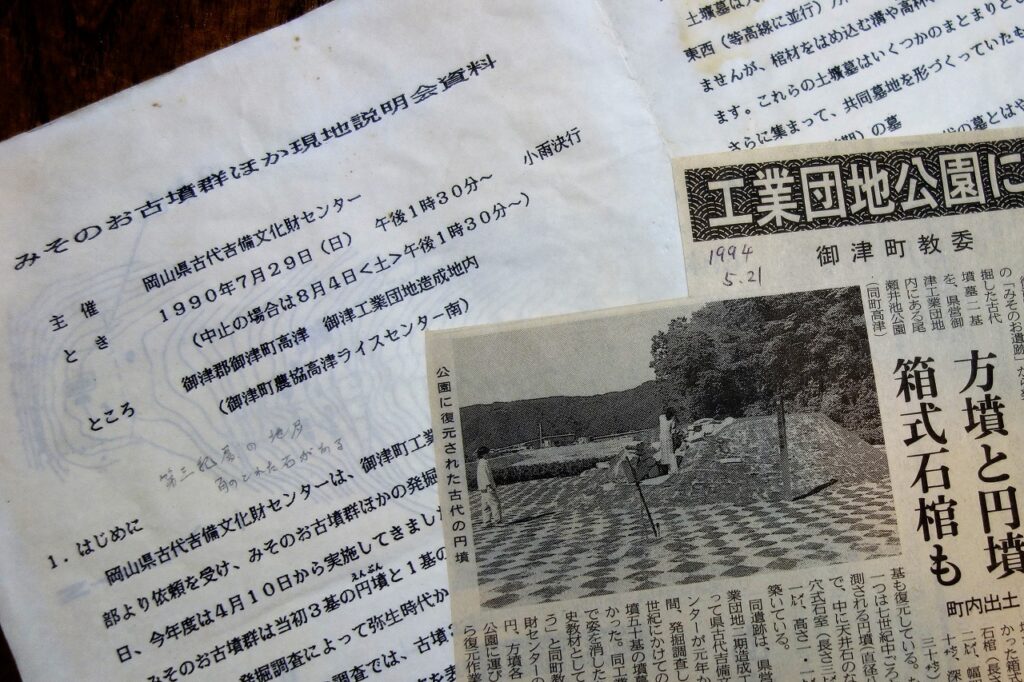 みそのお古墳群ほか現地説明会資料
主催 岡山県古代吉備文化財センター
とき 1990年7月29日(日) 午後1時30分~ 小雨決行
(中止の場合は8月4日<土>午後1時30分~)
ところ 御津郡御津町高津 御津工業団地造成地内
(御津町農協高津ライスセンター南)
1.はじめに
岡山県古代吉備文化財センターは、御津町工業
部より依頼を受け、みそのお古墳群ほかの発掘
今年度は4月10日から実施してきまし
みそのお古墳群は当初3基の円墳と1基の
発掘調査によって弥生時代か
調査では、古墳
土壙墓は
東西(等高線に並行)
ませんが、棺材をはめ込む溝や高杯
ます。これらの土壙墓はいくつかのまとまりと
さらに集まって、共同墓地を形づくっていたも
の墓
工業団地公園に
御津町教委
1994
5.21
の「みそのお遺跡」
掘した古代
墳墓二基
を、県営御
津工業団地
内にある尾
瀬井池公園
(同町高津)
方墳と円墳
箱式石棺も
町内出土
公園に復元された古代の円墳
基も復元している。
一つは七世紀中ごろ
測される円墳(直径
で、中に天井石のな
穴式石室(長さ三
築いている。
同遺跡は、県営
業団地二期造成工
って県古代吉備文
ンターが元年か
間、発掘調査し
世紀にかけての
墳五十基の墳墓
かった。同工業
で姿を消した
史教材として
財センターの
円、方墳各
公園に運び
ら復元作業